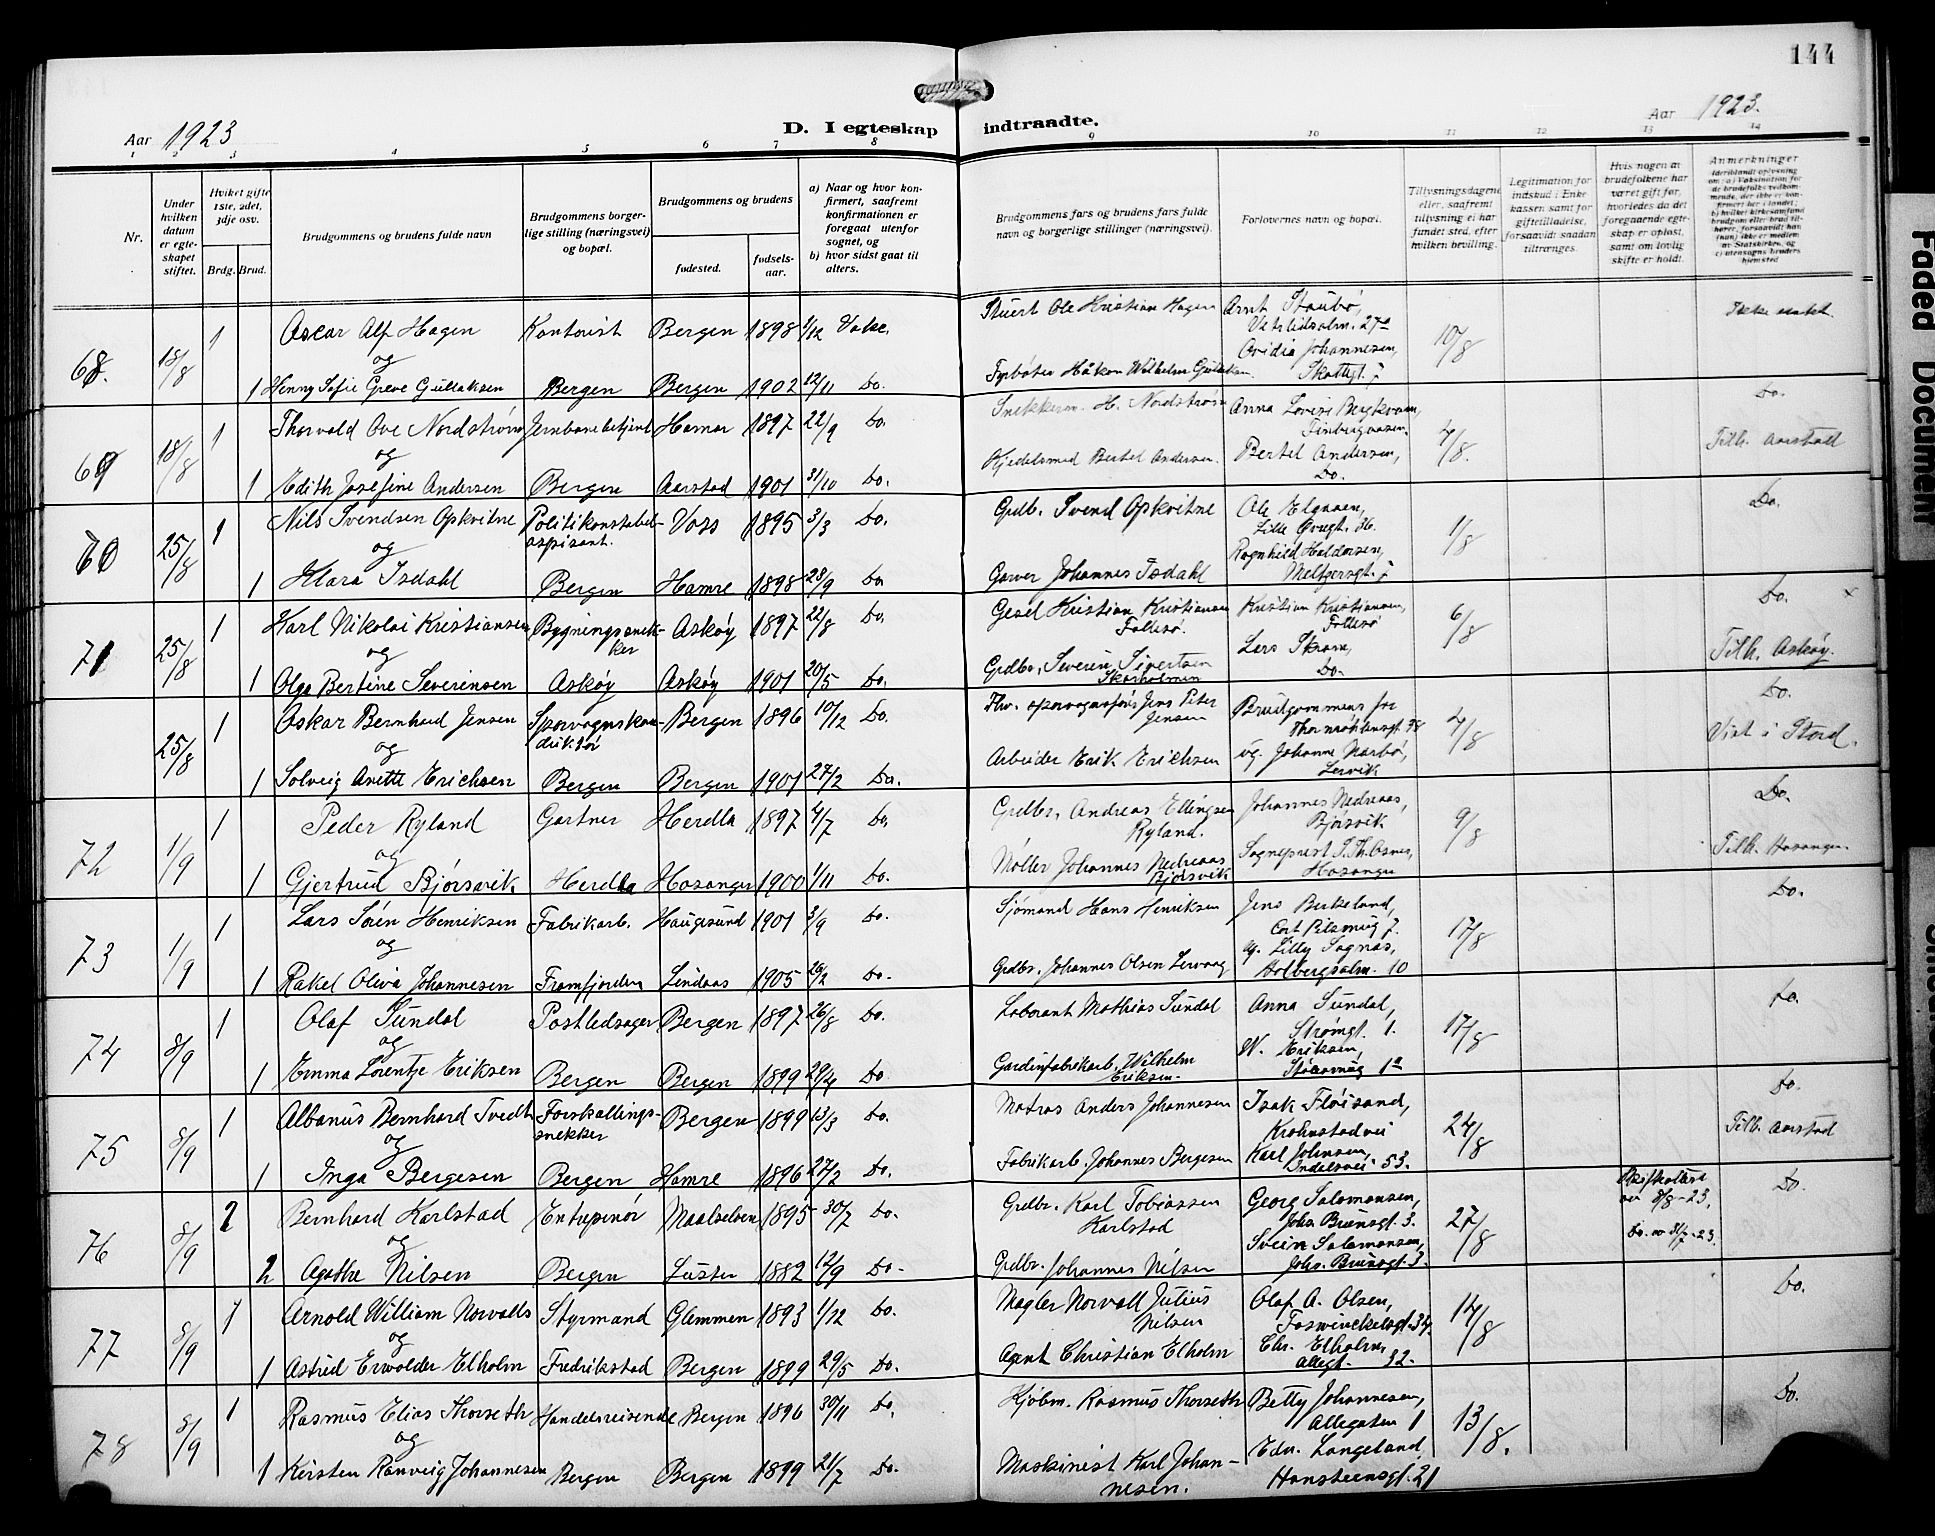 144
Aar 1923
D. I egteskap indtraadte.
Aar 1923.
1 2 3 4 5 6 7 8 9 10 11 12 13 14
Nr.
Under hvilken datum er egteskapet stiftet.
Hviket gifte 1ste, 2det, 3dje osv.
Brdg. Brud.
Brudgommens og brudens fulde navn
Brudgommens borgerlige stilling (næringsvei) og bopæl.
Brudgommens og brudens
fødested.
fødselsaar.
a) Naar og hvor konfirmert, saafremt konfirmationen er foregaat utenfor sognet, og
b) hvor sidst gaat til alters.
Brudgommens fars og brudens fars fulde navn og borgerlige stillinger (næringsvei).
Forlovernes navn og bopæl.
Tillysningsdagene eller, saafremt tillysning ei har fundet sted, efter hvilken bevilling.
Legitimation for indskud i Enkekassen samt for giftetilladelse, forsaavidt saadan tiltrænges.
Hvis nogen av brudefolkene har været gift før, hvorledes da det foregaaende egteskap er opløst, samt om lovlig skifte er holdt.
Anmerkninger
68. 18/8 1 Oscar Alf Hagen Kontorist Bergen 1898 1/12 Stuert Ole Kristian Hagen Arnt Staubø, 10/8
og Vetrlidsalm. 27a
Ovidia Johannesen,
1 Henny Sofie Greve Gullaksen Bergen Bergen 1902 12/11 Do. Fyrbøter Håkon Wilhelm Skottegt. 7
69 18/8 1 Thorvald Ove Nordstrøm Jernbanebetjent Hamar 1897 22/9 Do. Snekkerm. H. Nordstrøm Anna Lovise 4/8. Do.
og
1 Edith Josefine Andersen Bergen Aarstad 1901 31/10 Do. Kjedelsmed Bertel Andersen. Bertel Andersen, Do. Tilh. Aarstad
70 25/8 1 Nils Svendsen Opkvitne Politikonstabel-aspirant. Voss 1895 3/3 Do. Grdb. Svend Opkvitne Ole 1/8 Do.
og Lille Øvregt. 36.
Ragnhild Haldorsen,
1 Klara Isdahl Bergen Hamre 1898 28/9 Do Garver Johannes Isdahl Meltzersgt. 7
71 25/8 1 Karl Nikolai Kristiansen Bygningssnekker Askøy 1897 22/8 Do. Gesel Kristian Kristiansen Follesø. Kristian Kristiansen, Follesø 6/8 Do. x
og
1 Olga Bertine Severinsen Askøy Askøy 1901 20/5 Do. Grdbr. Severin Sivertsen Skarholmen Lars Skram, Do. Tilh. Askøy.
25/8 1 Oskar Bernhard Jensen Sporvognskonduktør Bergen 1896 10/12 Do. Fhv. sporvognsfør. Jens Peter Jensen Brudgommens far 4/8 Do.
og Thormøhlensgt. 78
1 Solveig Anette Erichsen Bergen Bergen 1901 27/2 Do. Arbeider Erik Erichsen og Johanne Narbø, Lervik Viet i Stord.
72 1/9 1 Peder Ryland Gartner Herdla 1897 4/7 Do. Grdbr. Andreas Ellingsen Ryland. Johannes Nedreaas, Bjørsvik 9/8 Do.
og
1 Gjertrud Bjørsvik Herdla Hosanger 1900 1/11 Do. Møller Johannes Nedreaas Bjørsvik Sogneprest Hosanger Tilh. Hosanger.
73 1/9 1 Lars Søren Henriksen Fabrikarb. Haugesund 1901 3/9 Do. Sjømand Hans Henriksen Jens Birkeland, 17/8 Do.
og
1 Rakel Oliva Johannesen Framfjorden Lindaas 1905 26/2 Do. Grdbr. Johannes Olsen Lervaag og. Lilly Sognas, Holbergsalm. 10
74 8/9 1 Olaf Sundal Postledsager Bergen 1897 26/8 Do. Laborant Mathias Sundal Anna Sundal, 17/8 Do.
og Strømgt. 1.
W. Eriksen,
1 Emma Lorentze Eriksen Bergen Bergen 1899 29/4 Do Gardinfabrikarb. Wilhelm Eriksen. 1a
75 8/9 1 Albanus Bernhard Tvedt Forskallings-snekker Bergen 1899 13/3 Do. Matros Anders Johannesen Isak Fløisand, 24/8 Do.
og Krohnstadvei Tilh. Aarstad
Karl Johnsen,
1 Inga Bergesen Bergen Hamre 1896 27/2 Do. Fabrikarb. Johannes Bergesen Indelsvei. 53.
76 8/9 2 Bernhard Karlstad Entrepenør Maalselven 1895 30/7 Do. Grdbr. Karl Tobiassen Karlstad Georg Salomonsen, 27/8 Skifteattest av 8/8-23. Do.
og Johs Brunsgt. 3.
Svein Salomonsen, Do. av 31/7-23.
2 Agathe Nilsen Bergen Luster 1882 12/9 Do. Grdbr. Johannes Nilsen Johs. Brunsgt. 3.
77 8/9 1 Arnold William Norvalls Styrmand Glemmen 1893 1/12 Do. Mægler Norvall Julius Nilsen Olaf A. Olsen, 14/8 Do.
og Foswinckelsgt. 34.
Chr. Elholm,
1 Astrid Erwolder Elholm Fredrikstad Bergen 1899 29/5 Do. Agent Christian Elholm Allegt. 32.
78 8/9 1 Rasmus Elias Thorseth Handelsreisende Bergen 1896 30/11 Do. Kjøbm. Rasmus Thorseth Betty Johannesen, 13/8. Do.
og Allegaten 1
Edv. Langeland
1 Kirsten Ranveig Johannesen Bergen Bergen 1899 21/7 Do. Maskinist Karl Johannesen. Hansteensgt. 21
Faded Document